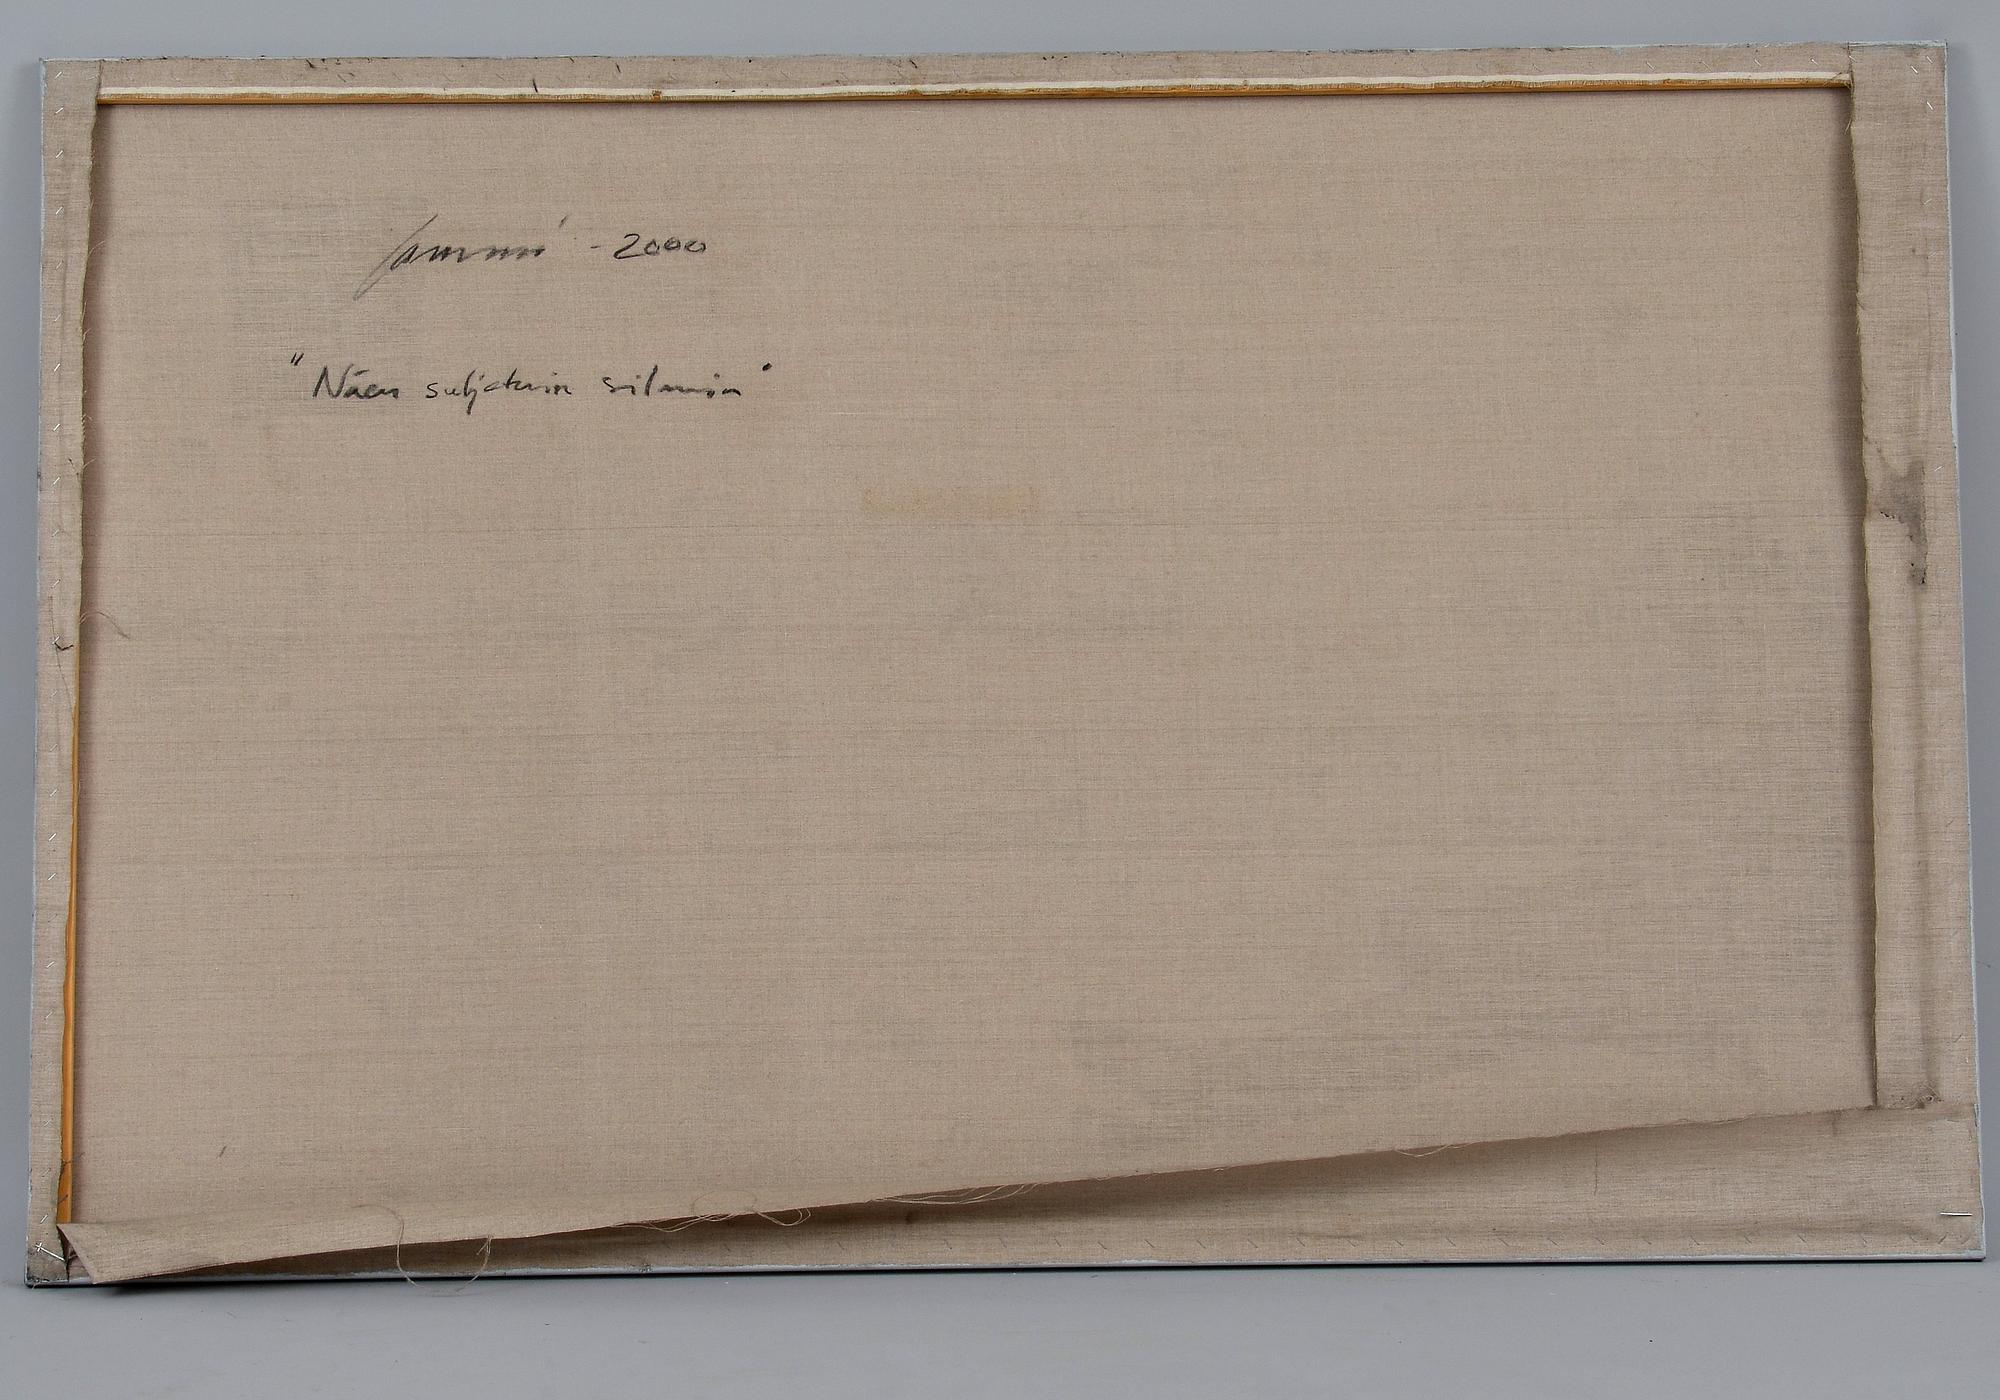 - 2000
"Näen suljetuin silmin"